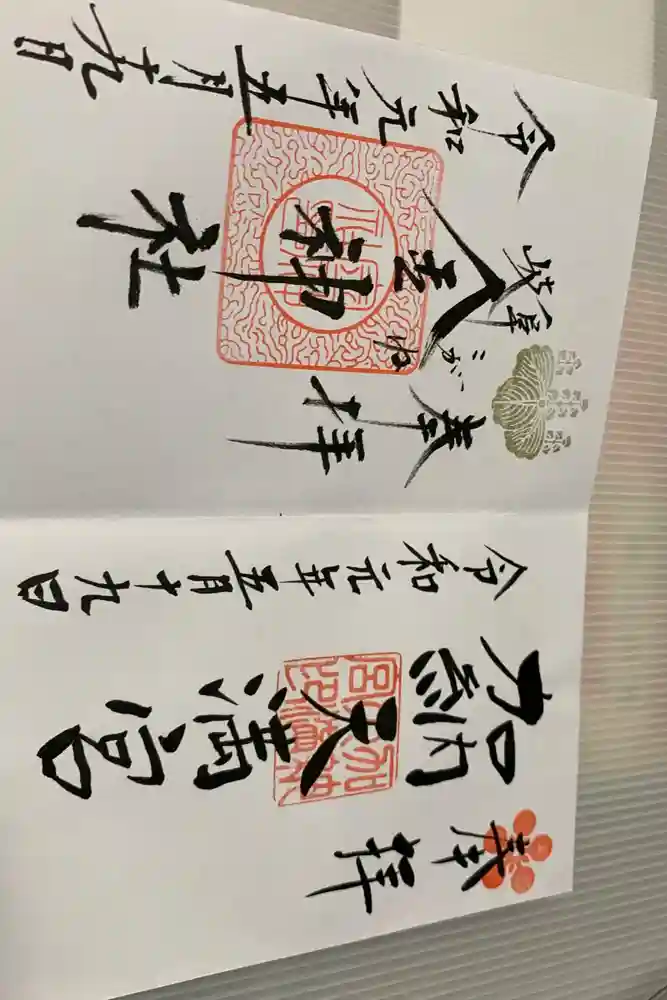 奉拝
加納天満宮
令和元年五月十九日
奉拝
こがね
岐阜
金神社
令和元年五月十九日